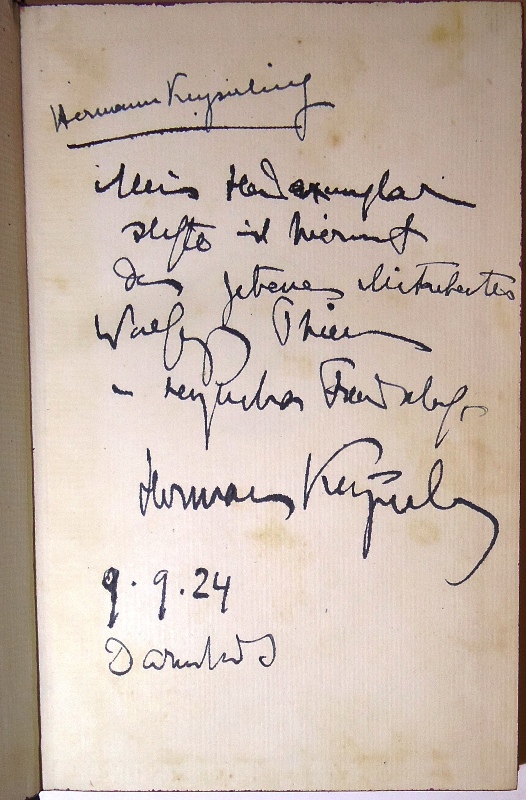 Hermann Keyserling
Mein Handexemplar
stifte ich hiermit
dem Mitarbeiter
Wolfgang
in Freundschaft
Hermann Keyserling
9.9.24
Darmstadt